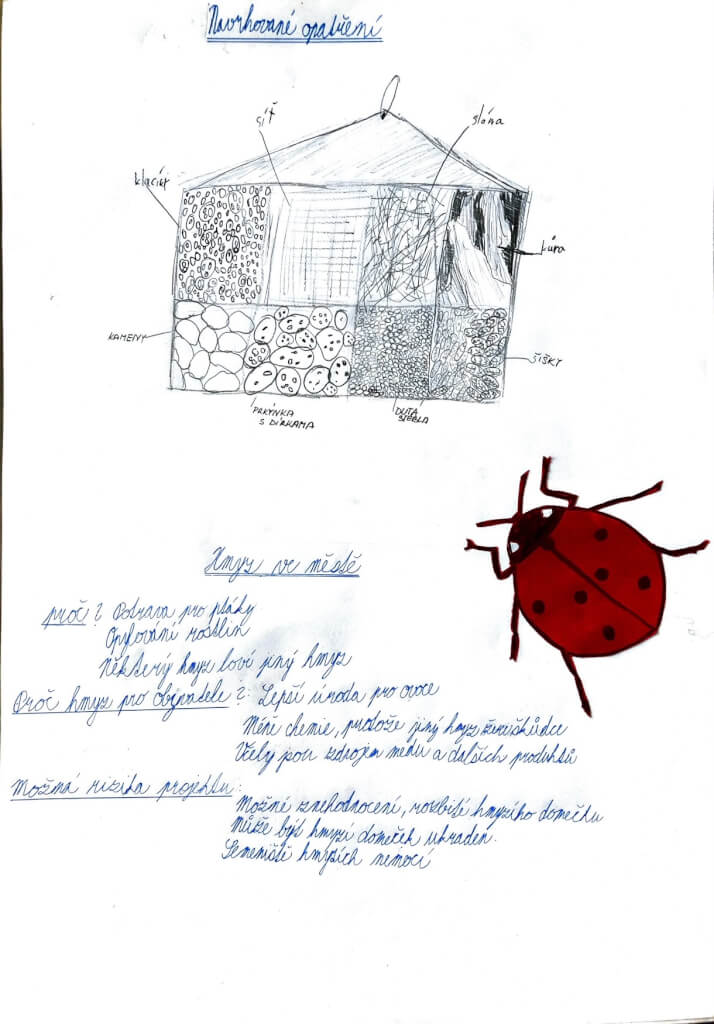 Navrhované opatření
síť
sláma
klacíky
kůra
KAMENY
ŠIŠKY
PRKÝNKA
S DÍRKAMA
DUTÁ
STÉBLA
Hmyz ve městě
proč? Potrava pro ptáky
Opylování rostlin
Některý hmyz loví jiný hmyz
Proč hmyz pro obyvatele?: Lepší úroda pro ovoce
Méně chemie, protože jiný hmyz žere škůdce
Včely jsou zdrojem medu a dalších produktů
Možná rizika projektu:
Možné znehodnocení, rozbité hmyzího domečku
Může být hmyzí domeček ukraden.
Semeniště hmyzích nemocí